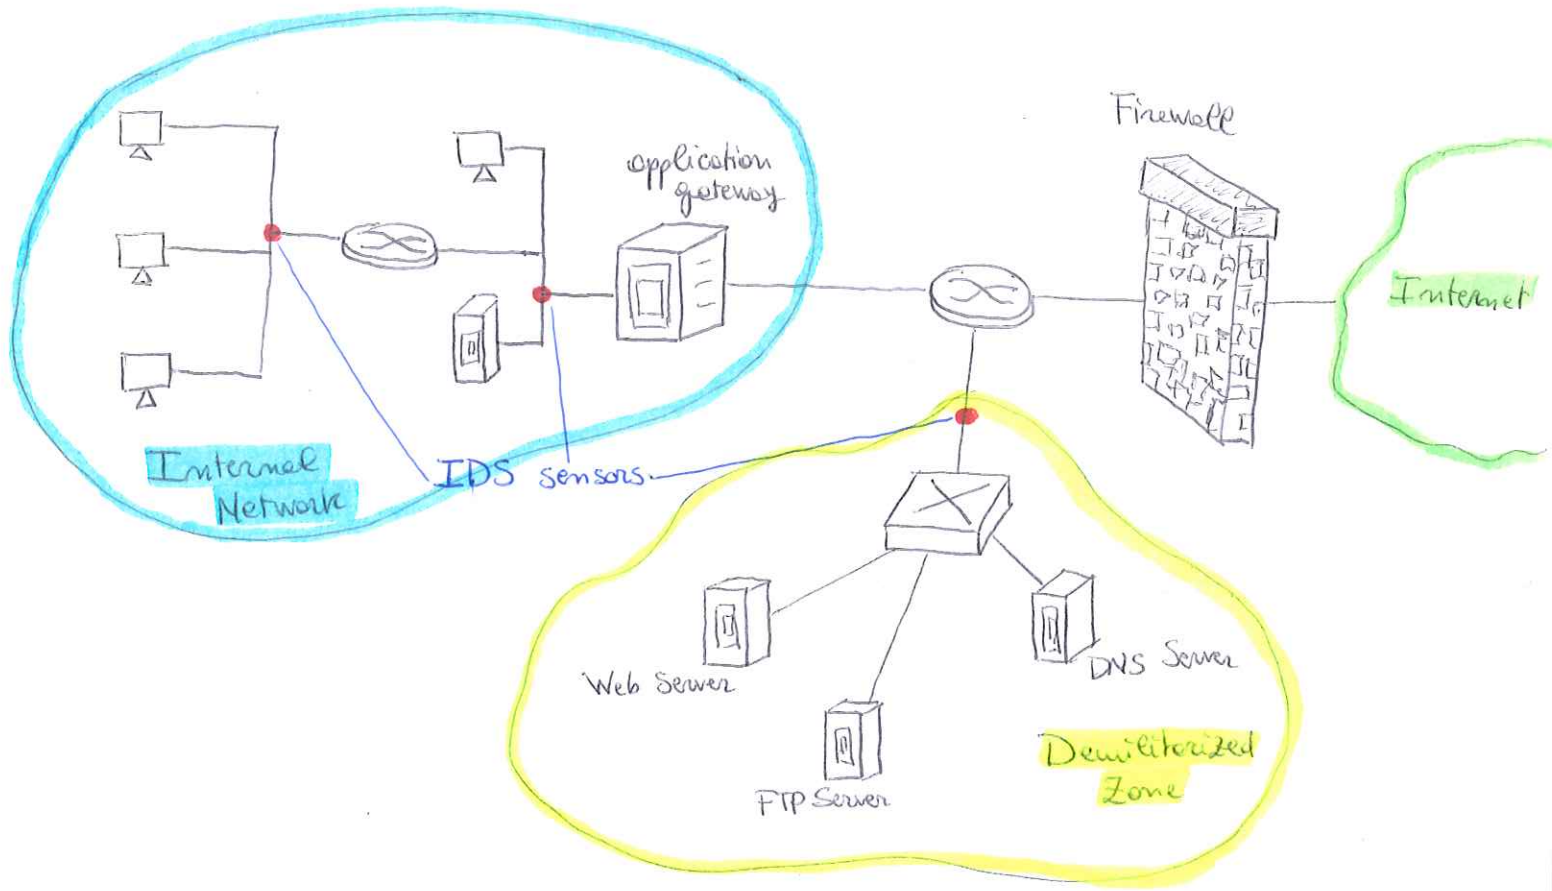 Firewall
application
gateway
Internet
Internal
Network
IDS sensors
Web Server
DNS Server
FTP Server
Demilitarized
Zone